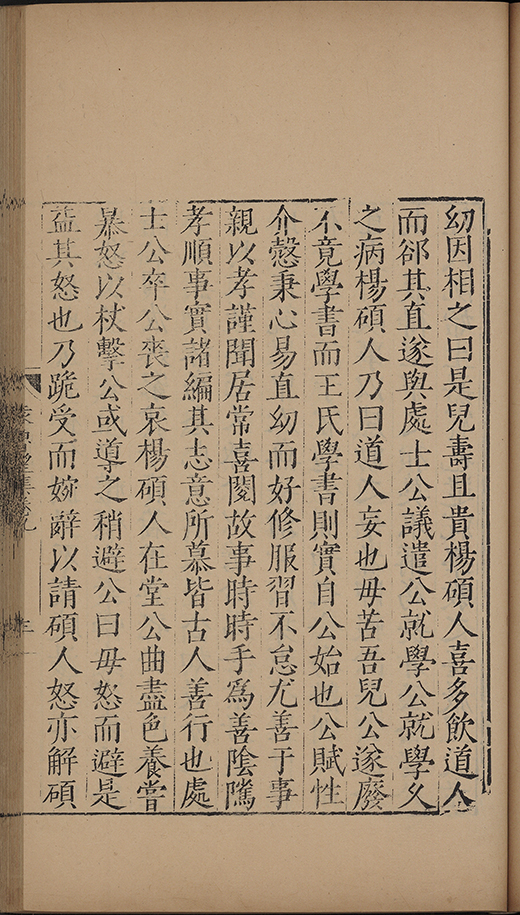 幼因相之曰是兒壽且貴楊碩人喜多飲道人
而郤其直遂與處士公議遣公就學公就學乆
之病楊碩人乃曰道人妄也毋苦吾兒公遂廢
不竟學書而王氏學書則實自公始也公賦性
介慤秉心易直幼而好修服習不怠尤善于事
親以孝謹聞居常喜閱故事時時手爲善陰隲
孝順事實諸編其志意所慕皆古人善行也處
士公卒公喪之哀楊碩人在堂公曲盡色養嘗
暴怒以杖擊公或導之稍避公曰毋怒而避是
益其怒也乃跪受而婉辭以請碩人怒亦解碩